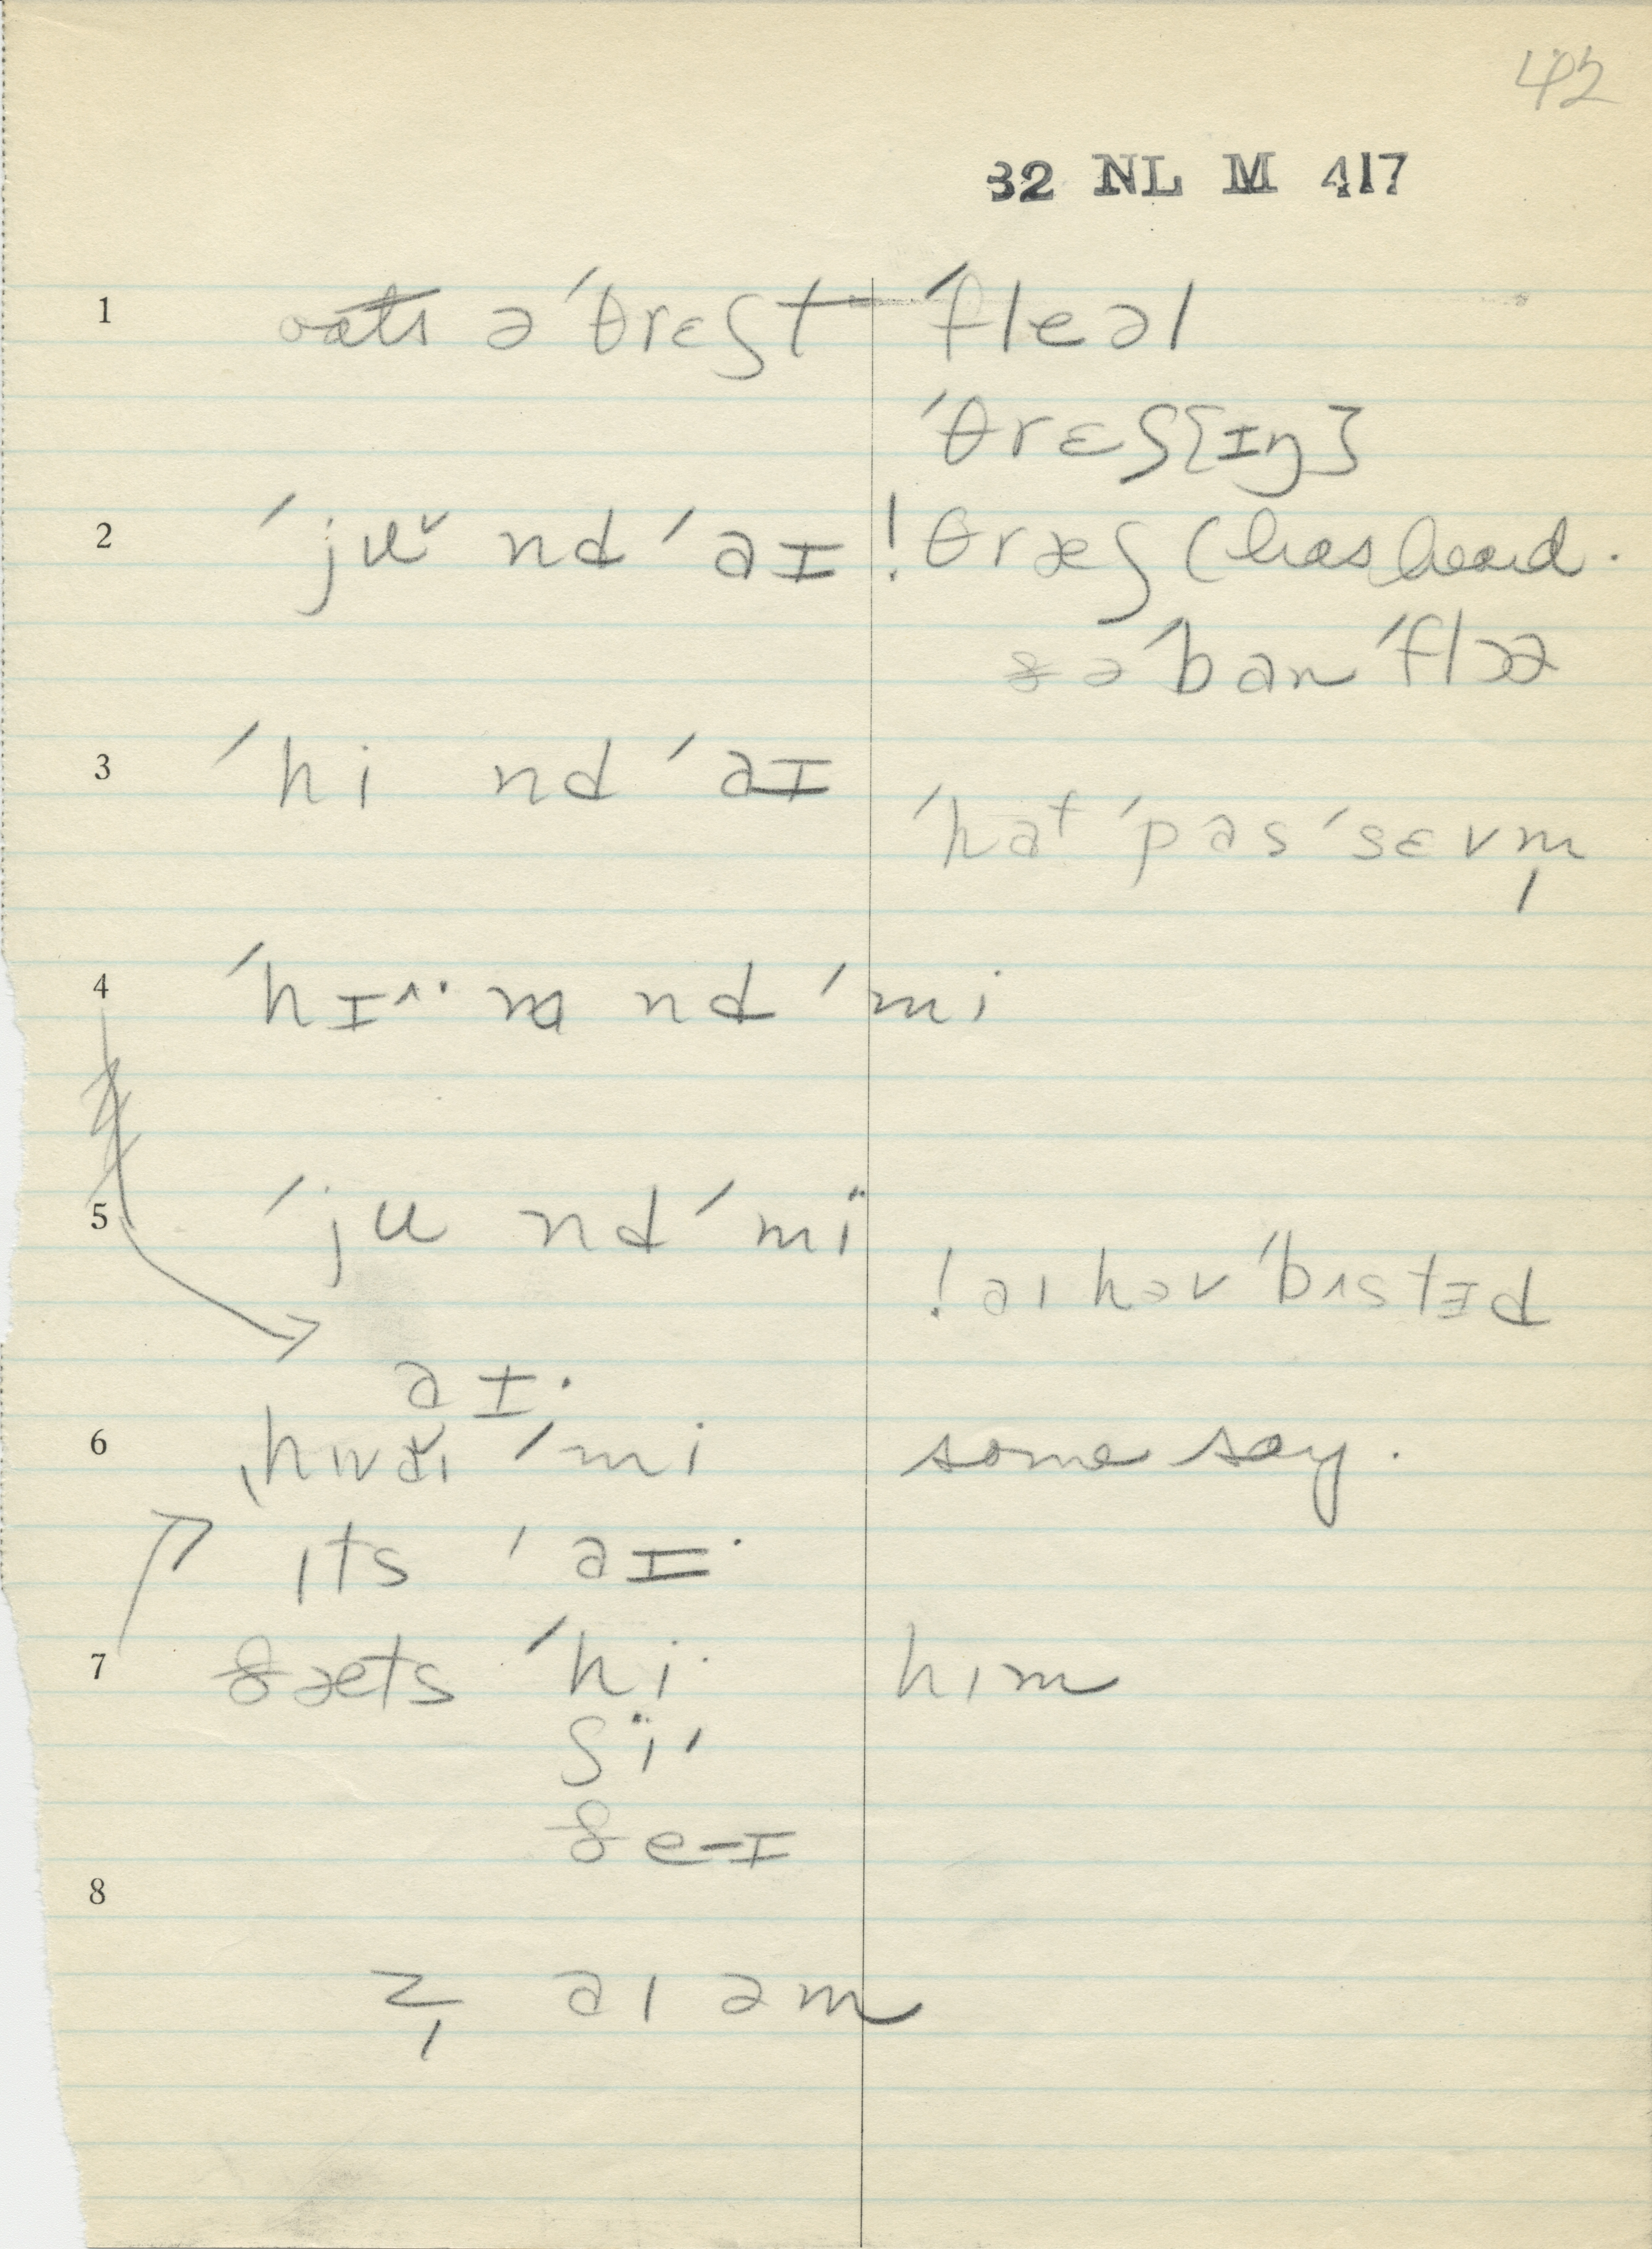 42
32 NL M 417
1 oats ə ˈθrɛʃt ˈfleəl
ˈθrɛʃ{ɪŋ}
2 ˈjuˇ nd ˈaɪ ! θræʃ (has heard.
ðə ˈban ˈflɔə
3 ˈhi nd ˈaɪ
ˈhat ˈpas ˈsɛvm̩
4 ˈhɪ^·· m nd ˈmi
5 ˈju nd ˈmï
! aɪ həv ˈbʌstɪd
aɪ·
6 ˌhwaɪ ˈmi some say.
ɪts ˈaɪ·
7 ðæts ˈhi· him
ʃï·
ðe-ɪ
8
z̩ aɪ am